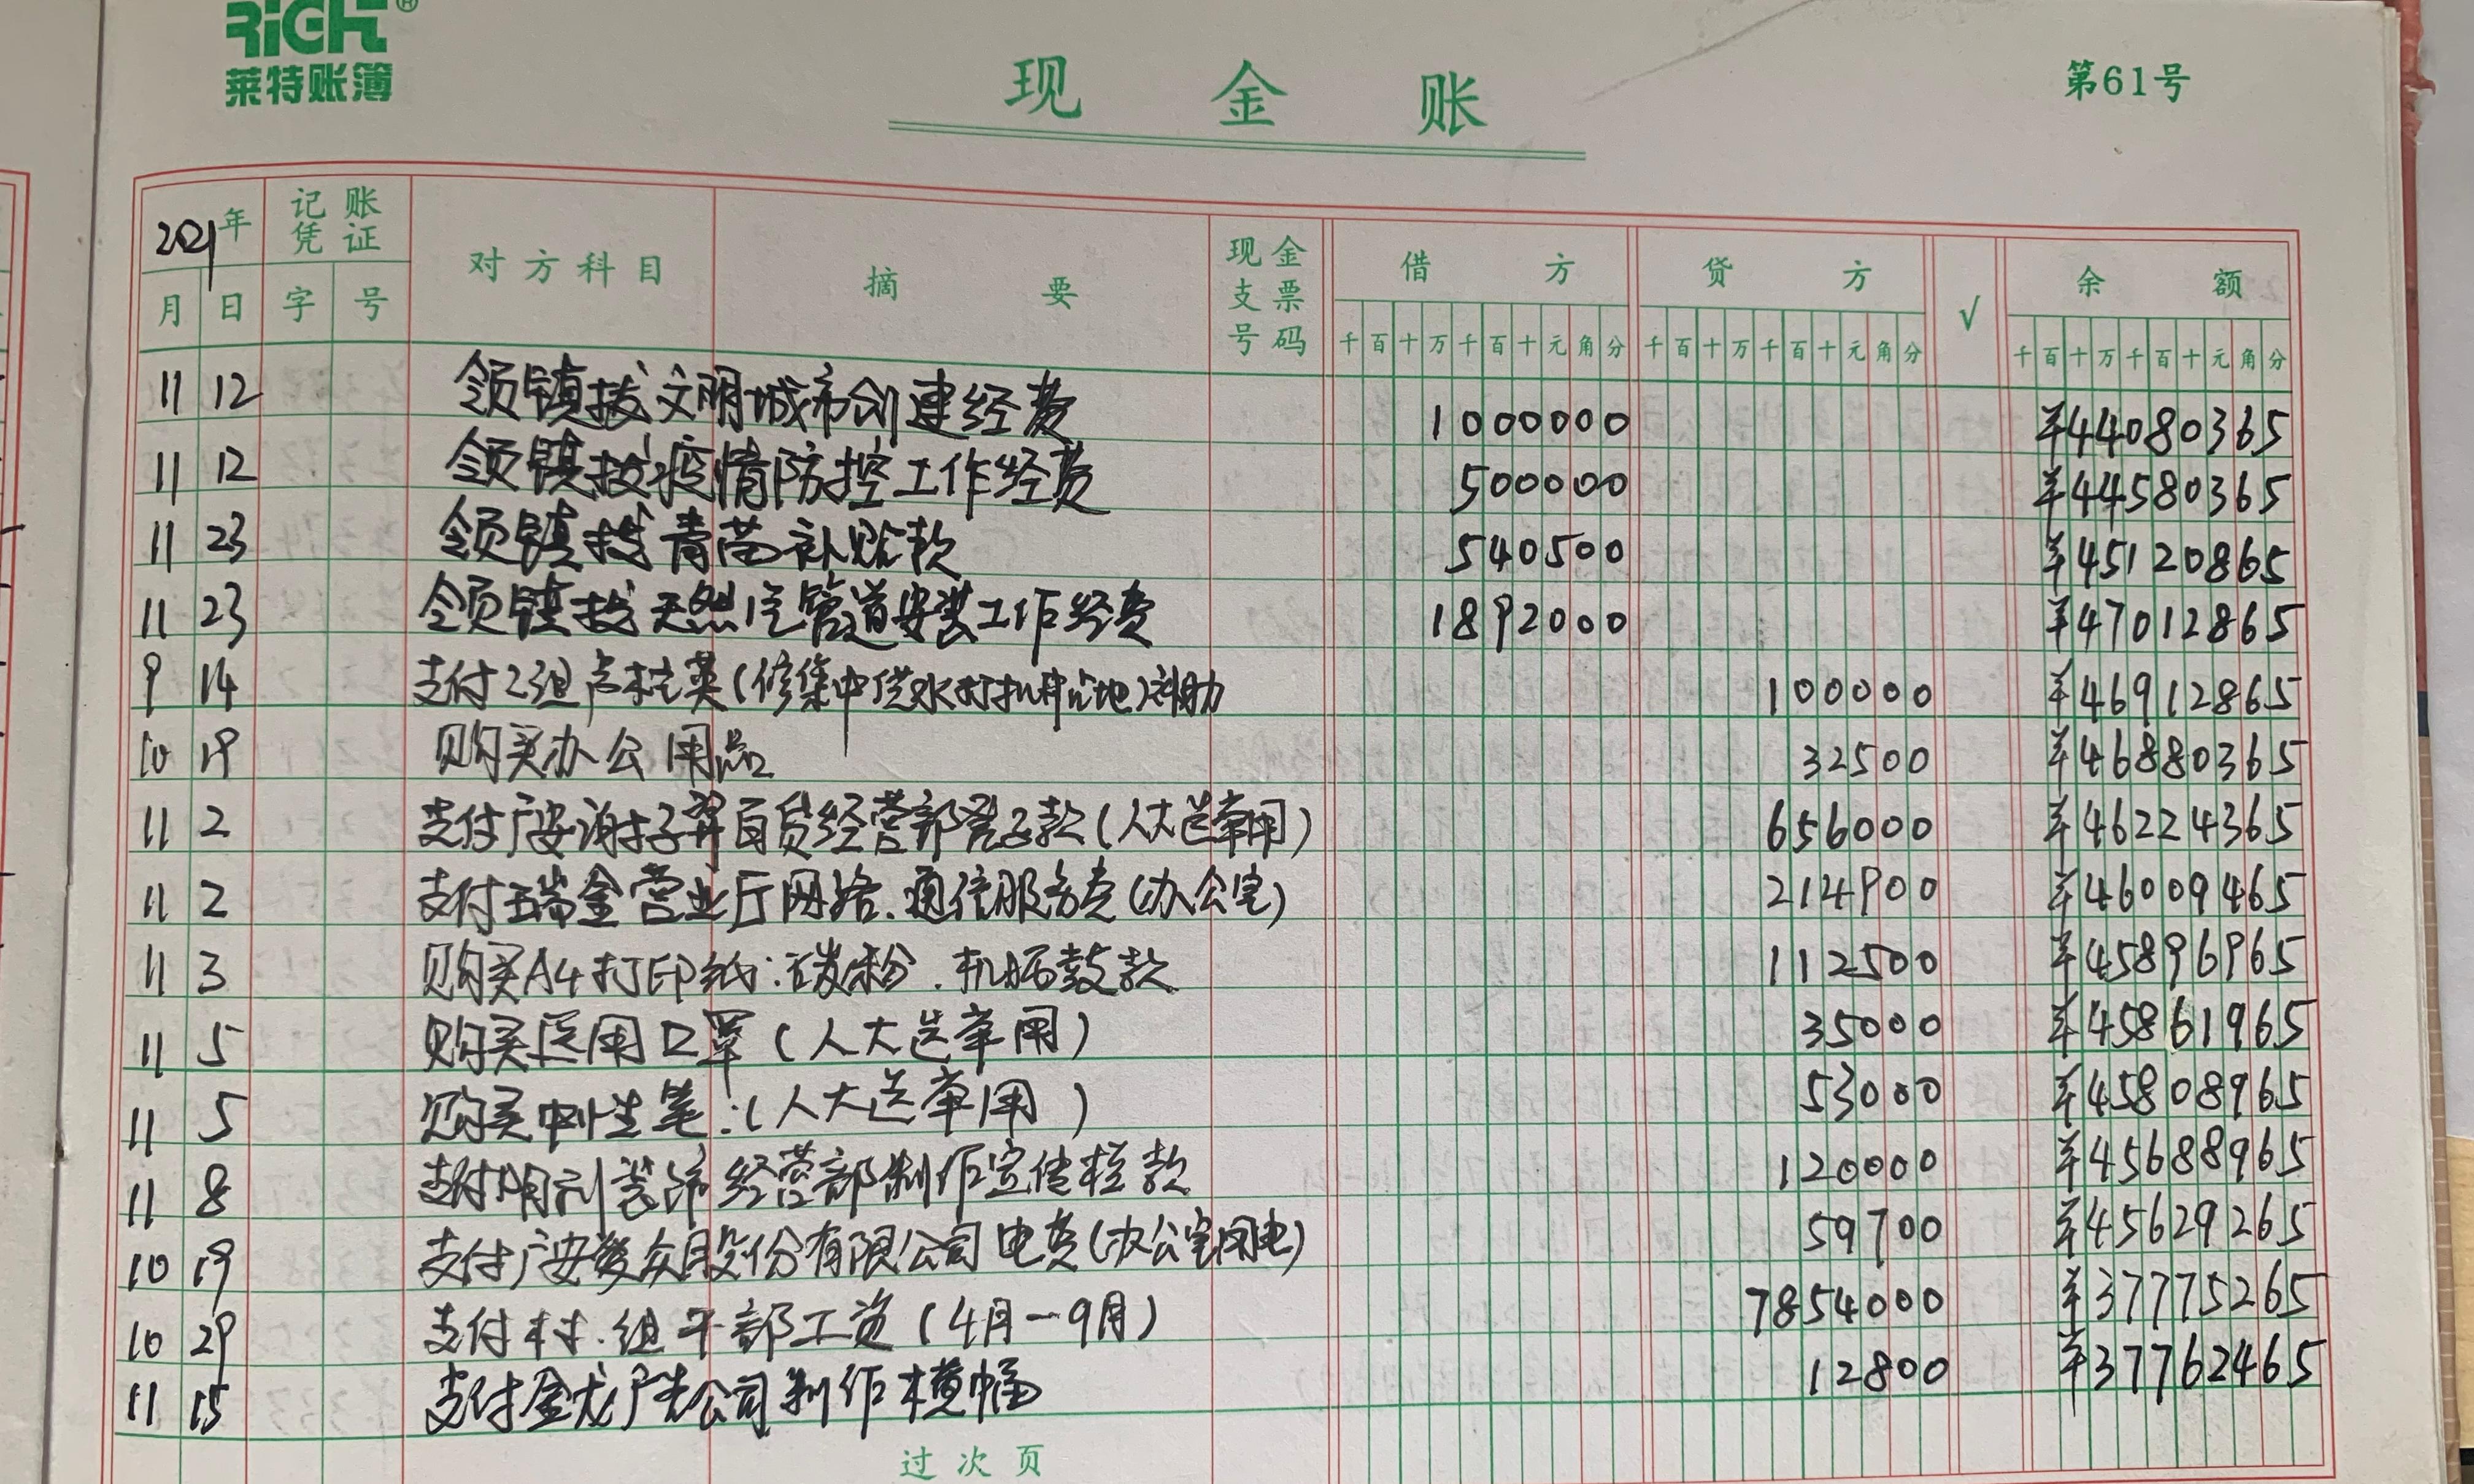 RiGHT®
莱特账簿
现金账
第61号
2021年 记账凭证 对方科目 摘要 现金支票号码 借方 贷方 √ 余额
月 日 字 号 千百十万千百十元角分 千百十万千百十元角分 千百十万千百十元角分
11 12 领镇拨文明城市创建经费 1000000 ¥44080365
11 12 领镇拨疫情防控工作经费 500000 ¥44580365
11 23 领镇拨青苗补贴款 540500 ¥45120865
11 23 领镇拨天然气管道安装工作经费 1892000 ¥47012865
9 14 支付2组 (修集中供水打机井占地)补助 100000 ¥46912865
10 19 购买办公用品 32500 ¥46880365
11 2 支付广安 百货经营部 款(人大选举用) 656000 ¥46224365
11 2 支付 瑞金营业厅网络.通信服务费(办公室) 214900 ¥46009465
11 3 购买A4打印纸.碳粉.机 鼓款 112500 ¥45896965
11 5 购买医用口罩(人大选举用) 35000 ¥45861965
11 5 购买中性笔:(人大选举用) 53000 ¥45808965
11 8 支付明 装饰经营部制作宣传栏款 120000 ¥45688965
10 19 支付广安爱众股份有限公司电费(办公室用电) 59700 ¥45629265
10 29 支付村.组干部工资(4月-9月) 7854000 ¥37775265
11 15 支付金龙广告公司制作横幅 12800 ¥37762465
过次页